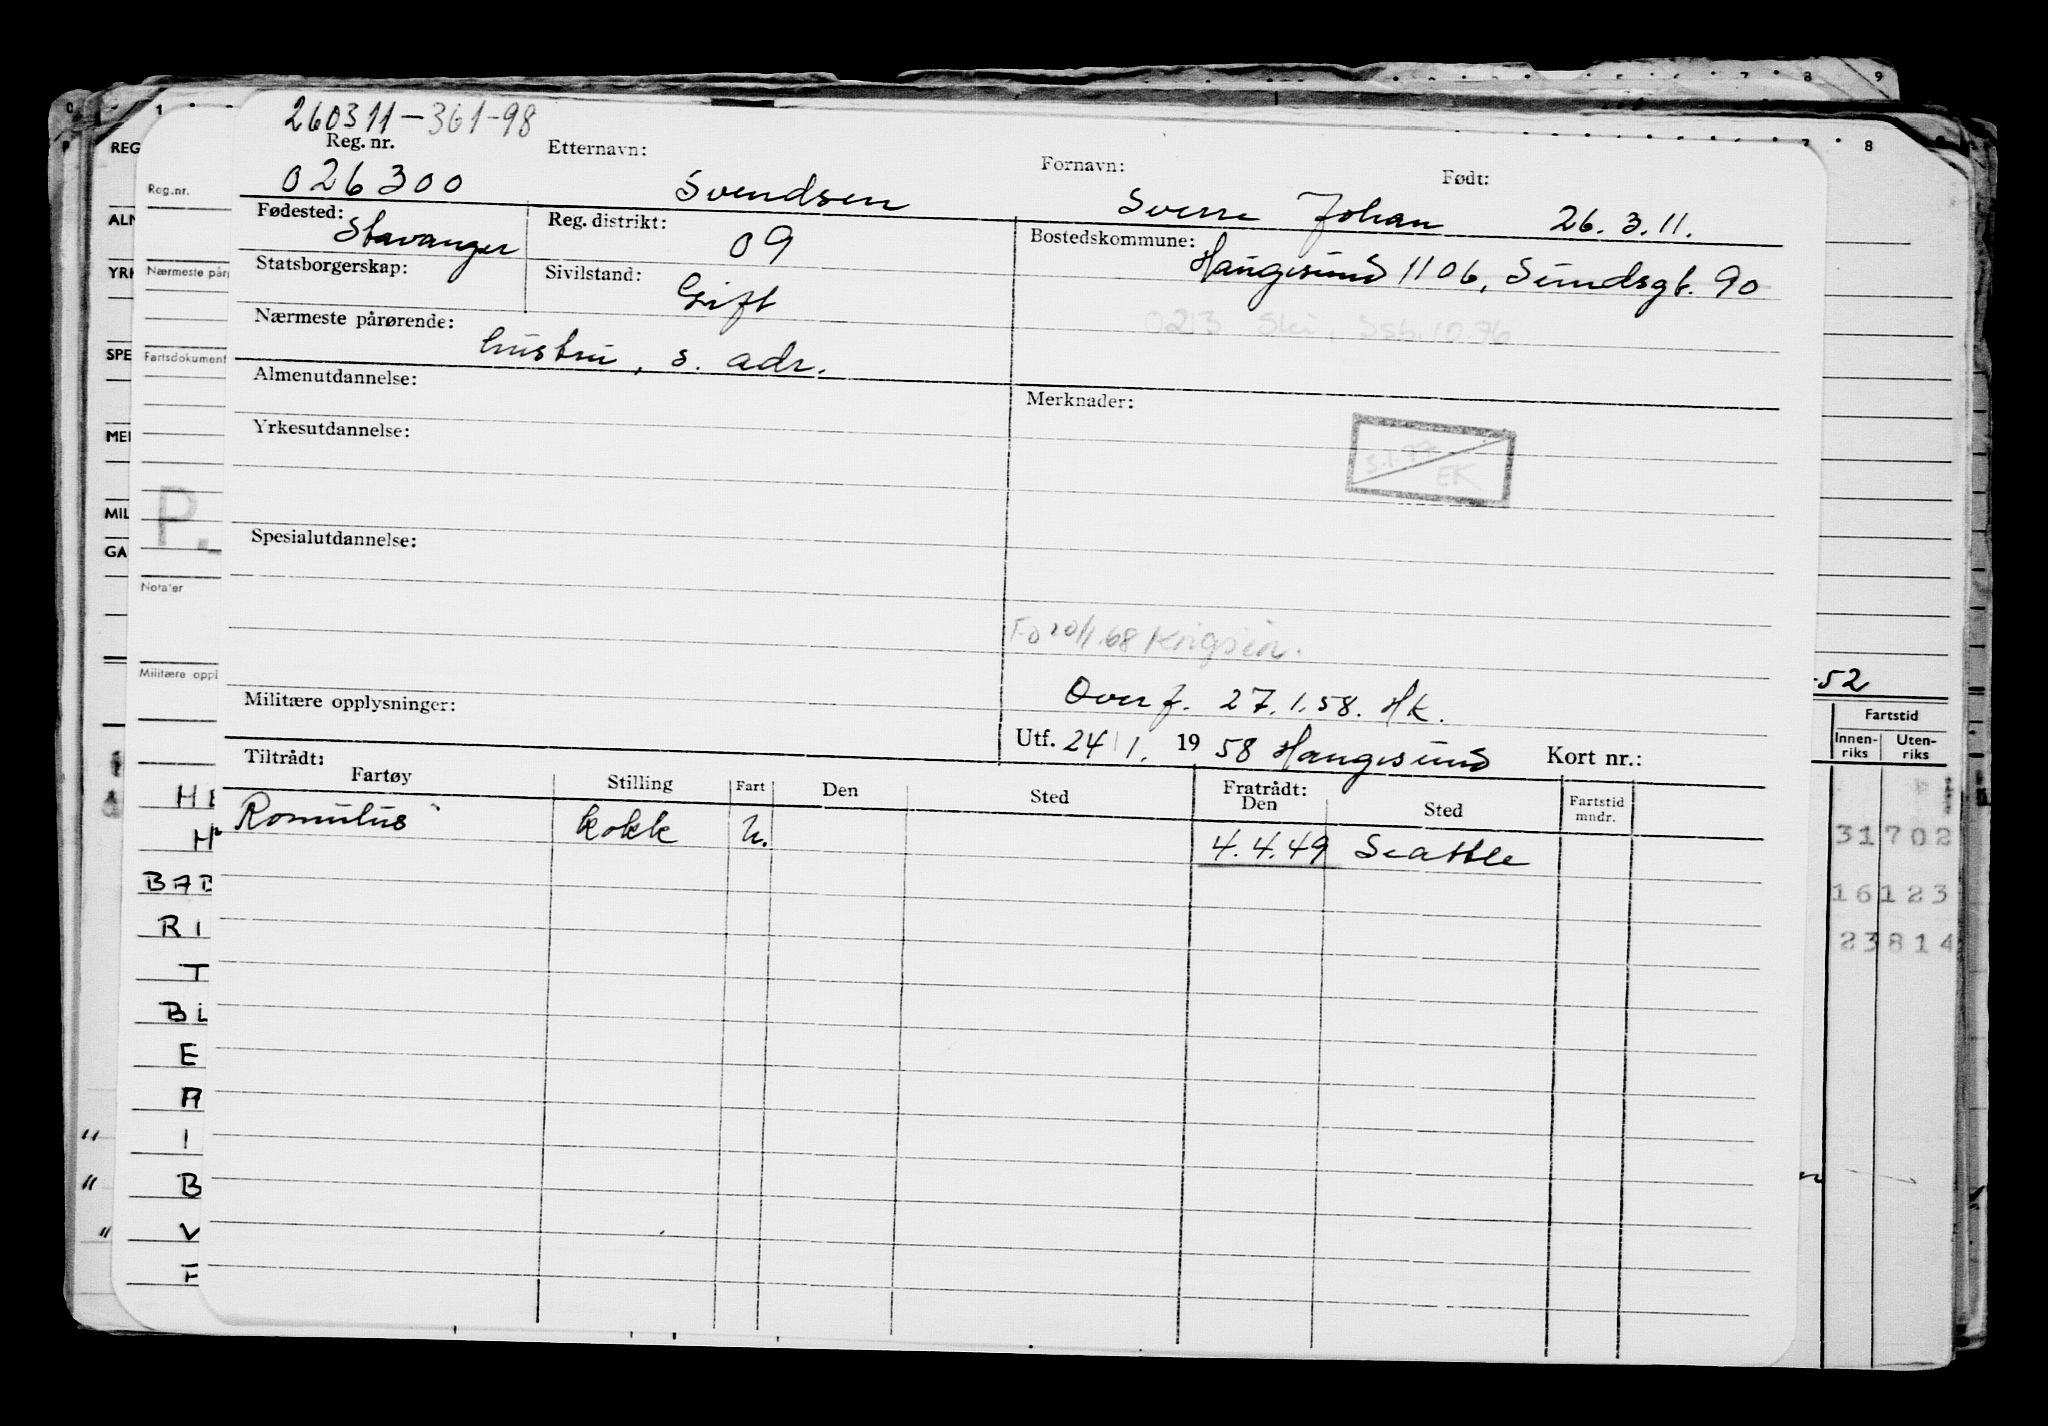 260311-361-98
Reg. nr. Etternavn: Fornavn: Født:
026300 Svendsen Sverre Johan 26.3.11.
Fødested: Reg. distrikt: Bostedskommune:
Stavanger 09 Haugesund 1106, Sundsgt. 90
Statsborgerskap: Sivilstand:
Gift
0213 Ski, Ssb. 10.76
Nærmeste pårørende:
hustru, s. adr.
Almenutdannelse: Merknader:
Yrkesutdannelse:
EK
Spesialutdannelse:
20/1.68 Krigsen.
Overf. 27.1.58. Hk.
Militære opplysninger:
Utf. 24/1. 1958 Haugesund Kort nr.:
Tiltrådt: Fratrådt:
Fartøy Stilling Fart Den Sted Den Sted Fartstid mndr.
Romulus kokk U. 4.4.49 Seattle
0 1 7 8 9
7 8
REG
Reg.nr.
ALN
YRK
Nærmeste pår
SPE
Fartsdokument
MEI
MIL
P.
GA
Nota'er
Militære oppl
HE
H
BAB
RI
T
BL
E
A
" I
" B
" V
F
-52
Fartstid
Innen-riks Uten-riks
31702
16123
23814